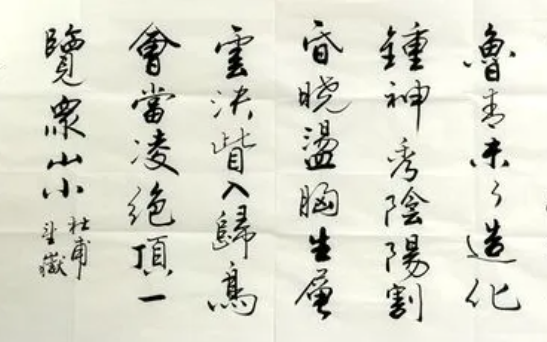 魯青未了造化
鍾神秀陰陽割
昏晓盪胸生層
雲決眥入歸鳥
會當凌絶頂一
覽衆山小
杜甫
望嶽